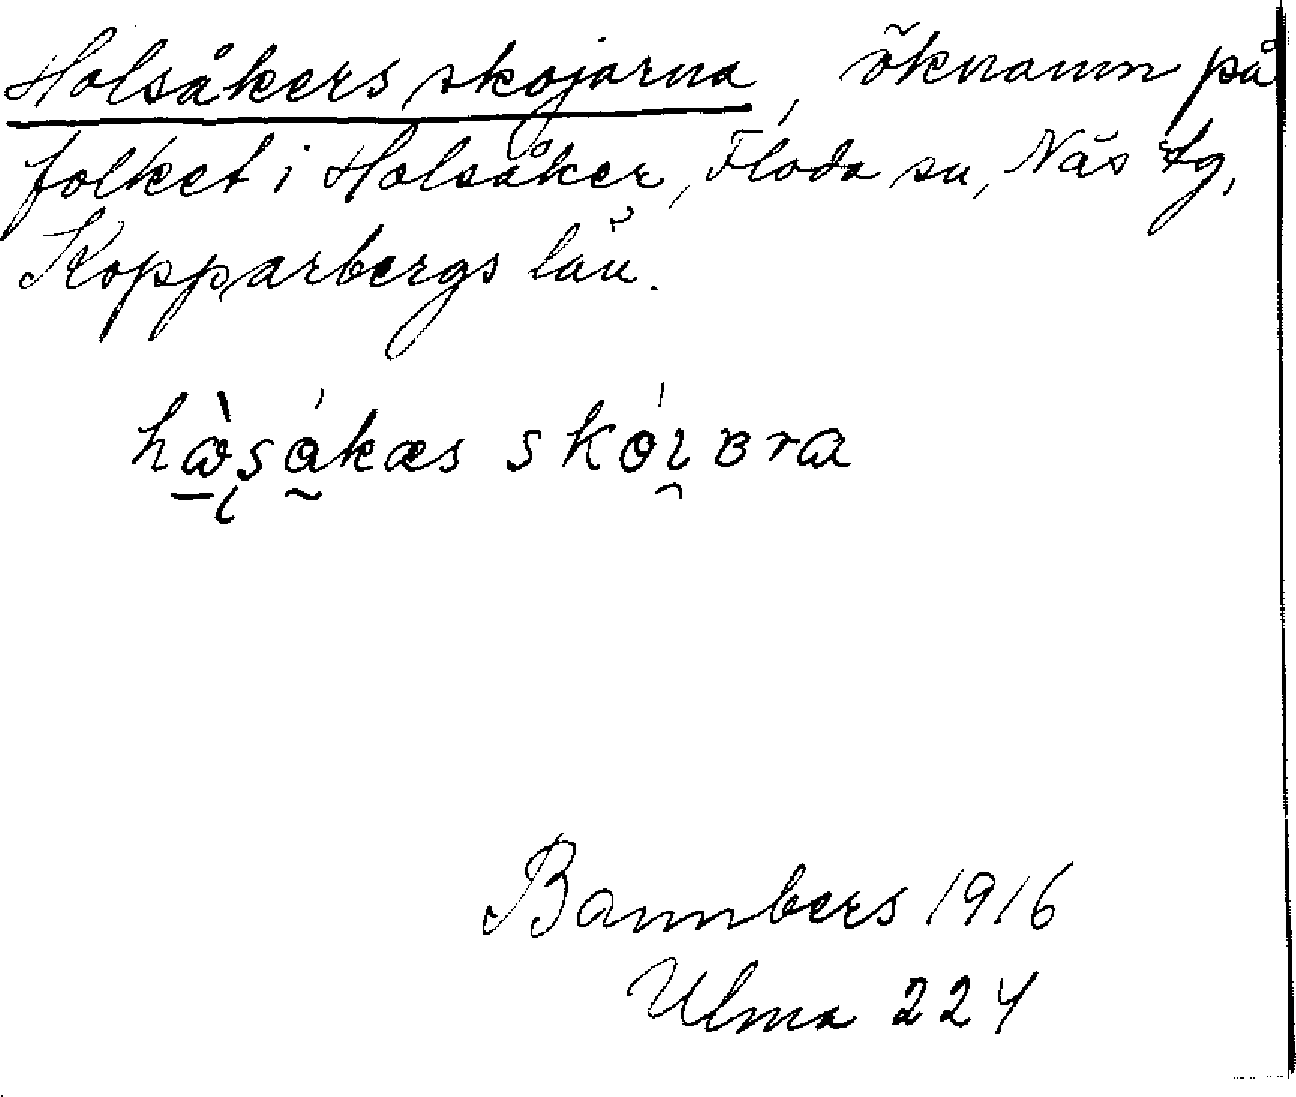 Holsåkers skojarna, öknamn på
folket i Holsåker, Floda sn, Näs tg,
Kopparbergs län.
Bannbers 1916
Ulma 224